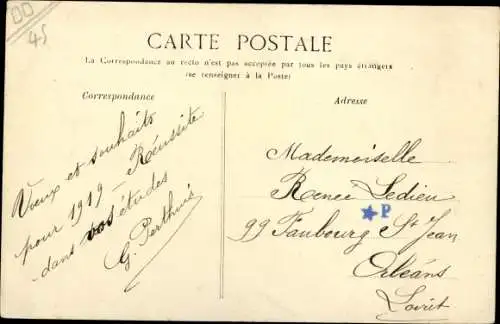 45
CARTE POSTALE
La Correspondance au recto n'est pas acceptée par tous les pays étrangers
(se renseigner à la Poste)
Correspondance
Vœux et souhaits
pour 1919 - Réussite
dans vos études
G. Perthuis
Adresse
Mademoiselle
Renée Ledieu
P
99 Faubourg St Jean
Orléans
Loiret